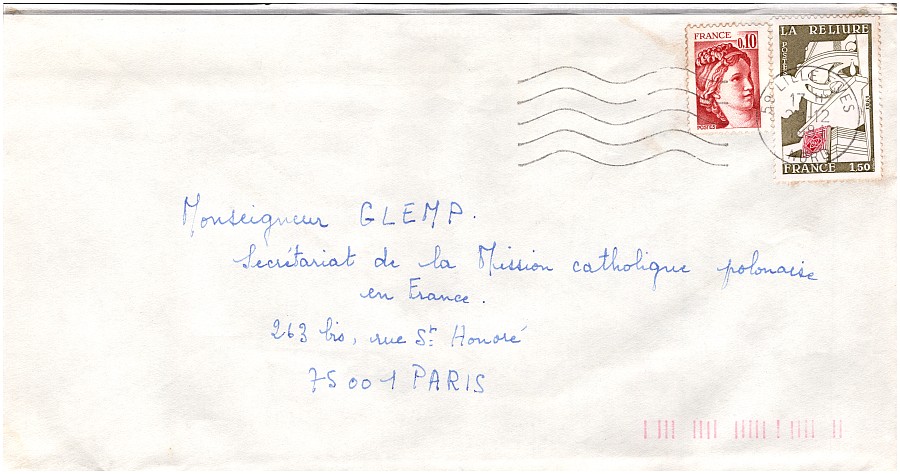 FRANCE
0,10
POSTES
LA RELIURE
POSTES
FRANCE 1.50
59 LILLE
17 H
12
NORD
Monseigneur GLEMP.
Secrétariat de la Mission catholique polonaise
en France.
263 bis, rue St. Honoré
75001 PARIS